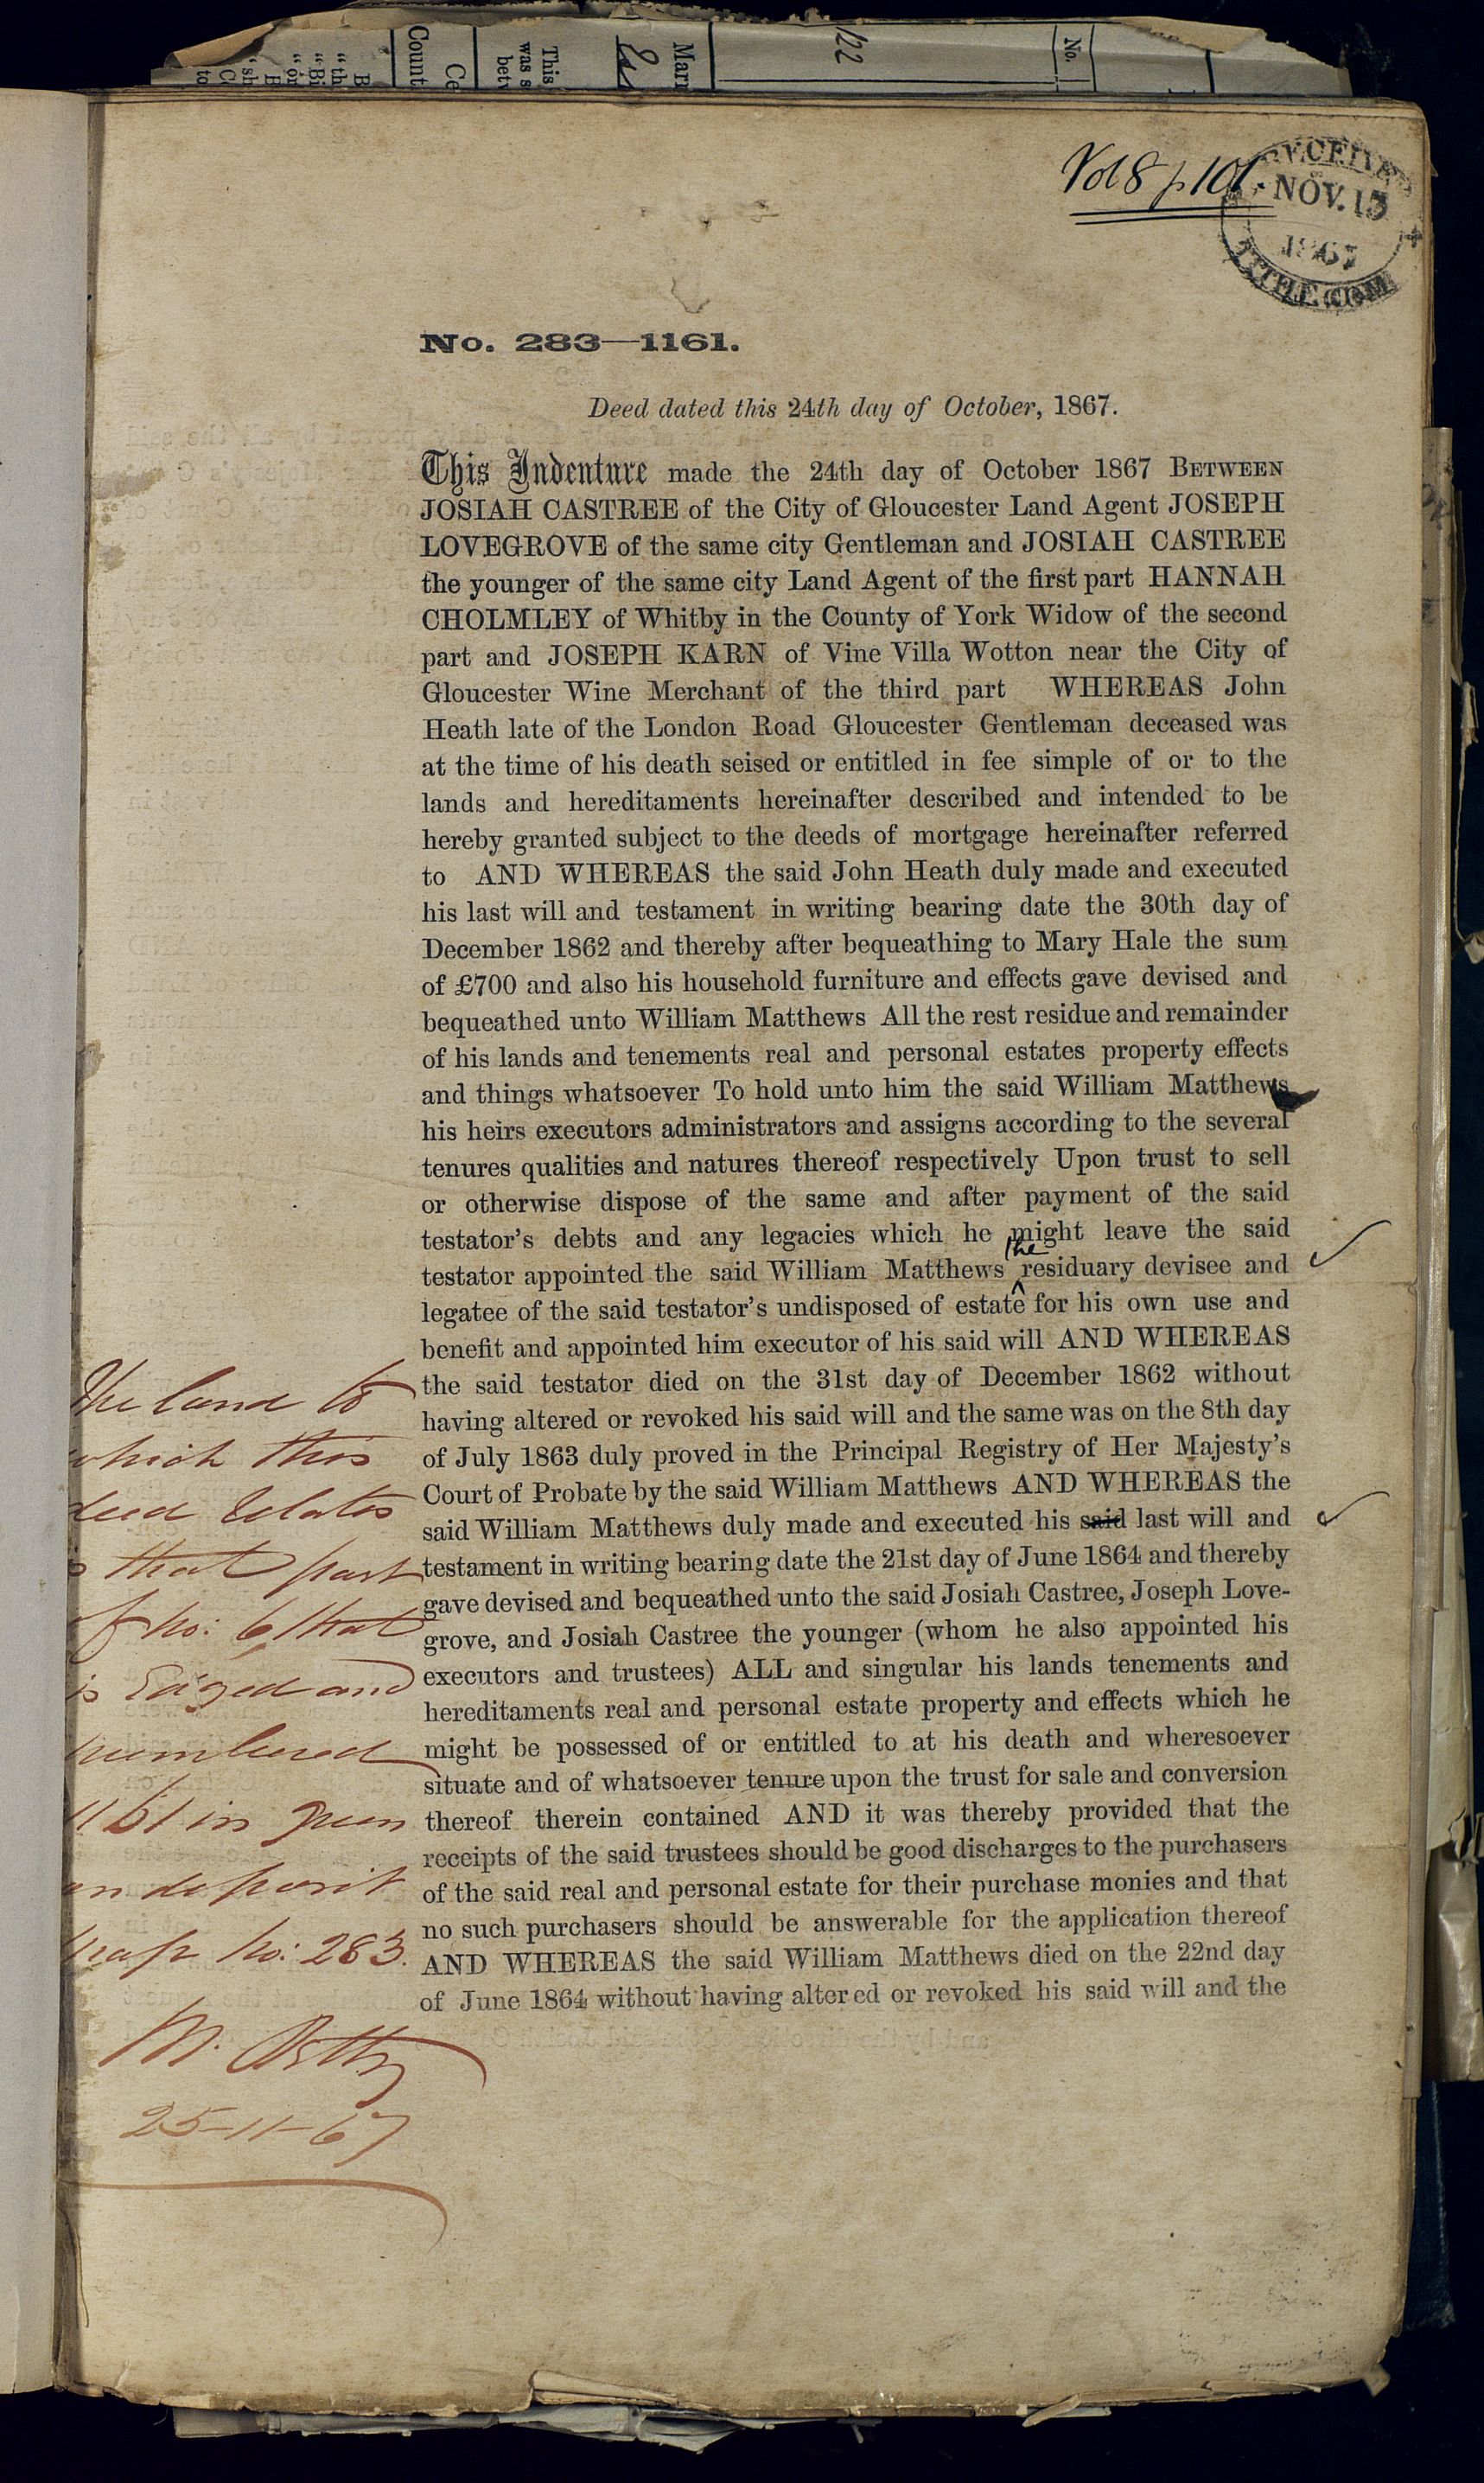 Count
Ce
This
was s
betv
Marr
122
No.
Vol 8 p 101.
RECEIVED
NOV. 15
1867
TITHE COM
No. 283—1161.
Deed dated this 24th day of October, 1867.
This Indenture made the 24th day of October 1867 BETWEEN
JOSIAH CASTREE of the City of Gloucester Land Agent JOSEPH
LOVEGROVE of the same city Gentleman and JOSIAH CASTREE
the younger of the same city Land Agent of the first part HANNAH
CHOLMLEY of Whitby in the County of York Widow of the second
part and JOSEPH KARN of Vine Villa Wotton near the City of
Gloucester Wine Merchant of the third part WHEREAS John
Heath late of the London Road Gloucester Gentleman deceased was
at the time of his death seised or entitled in fee simple of or to the
lands and hereditaments hereinafter described and intended to be
hereby granted subject to the deeds of mortgage hereinafter referred
to AND WHEREAS the said John Heath duly made and executed
his last will and testament in writing bearing date the 30th day of
December 1862 and thereby after bequeathing to Mary Hale the sum
of £700 and also his household furniture and effects gave devised and
bequeathed unto William Matthews All the rest residue and remainder
of his lands and tenements real and personal estates property effects
and things whatsoever To hold unto him the said William Matthews
his heirs executors administrators and assigns according to the several
tenures qualities and natures thereof respectively Upon trust to sell
or otherwise dispose of the same and after payment of the said
testator's debts and any legacies which he might leave the said
testator appointed the said William Matthews the residuary devisee and
legatee of the said testator's undisposed of estate for his own use and
benefit and appointed him executor of his said will AND WHEREAS
the said testator died on the 31st day of December 1862 without
having altered or revoked his said will and the same was on the 8th day
of July 1863 duly proved in the Principal Registry of Her Majesty's
Court of Probate by the said William Matthews AND WHEREAS the
said William Matthews duly made and executed his said last will and
testament in writing bearing date the 21st day of June 1864 and thereby
gave devised and bequeathed unto the said Josiah Castree, Joseph Love-
grove, and Josiah Castree the younger (whom he also appointed his
executors and trustees) ALL and singular his lands tenements and
hereditaments real and personal estate property and effects which he
might be possessed of or entitled to at his death and wheresoever
situate and of whatsoever tenure upon the trust for sale and conversion
thereof therein contained AND it was thereby provided that the
receipts of the said trustees should be good discharges to the purchasers
of the said real and personal estate for their purchase monies and that
no such purchasers should be answerable for the application thereof
AND WHEREAS the said William Matthews died on the 22nd day
of June 1864 without having altered or revoked his said will and the
The land to
which this
deed relates
is that part
of No: 6 that
is Edged and
numbered
1161 in green
on deposit
map No: 283.
25-11-67